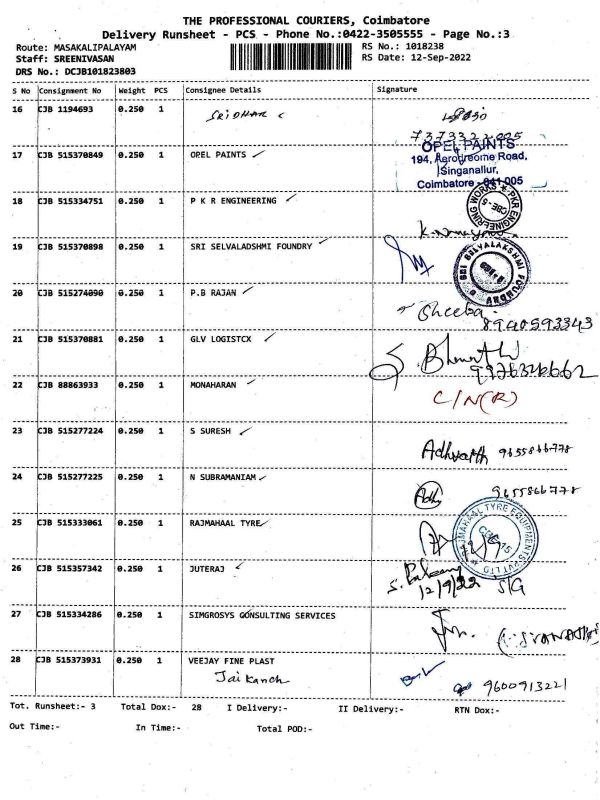 THE PROFESSIONAL COURIERS, Coimbatore
Delivery Runsheet - PCS - Phone No.:0422-3505555 - Page No.:3
Route: MASAKALIPALAYAM
RS No.: 1018238
Staff: SREENIVASAN
RS Date: 12-Sep-2022
DRS No.: DCJB101823803
S No Consignment No Weight PCS Consignee Details Signature
16 CJB 1194693 0.250 1 SRIDHAR
17 CJB 515370849 0.250 1 OPEL PAINTS
OPEL PAINTS
194, Aerodreome Road,
Singanallur,
Coimbatore - 641 005
18 CJB 515334751 0.250 1 P K R ENGINEERING
PKR ENGINEERING WORKS
CBE-5
19 CJB 515370898 0.250 1 SRI SELVALADSHMI FOUNDRY
SRI SELVALAKSHMI FOUNDRY
20 CJB 515274090 0.250 1 P.B RAJAN
Sheeba
8940593343
21 CJB 515370881 0.250 1 GLV LOGISTCX
22 CJB 88863933 0.250 1 MONAHARAN
C/N(R)
23 CJB 515277224 0.250 1 S SURESH
9655866778
24 CJB 515277225 0.250 1 N SUBRAMANIAM
Adhy 9655866778
25 CJB 515333061 0.250 1 RAJMAHAAL TYRE
RAJMAHAAL TYRE EQUIPMENTS PVT LTD
26 CJB 515357342 0.250 1 JUTERAJ
12/9/22 S/G
27 CJB 515334286 0.250 1 SIMGROSYS CONSULTING SERVICES
28 CJB 515373931 0.250 1 VEEJAY FINE PLAST
Jai Kanch
9600913221
Tot. Runsheet:- 3 Total Dox:- 28 I Delivery:- II Delivery:- RTN Dox:-
Out Time:- In Time:- Total POD:-